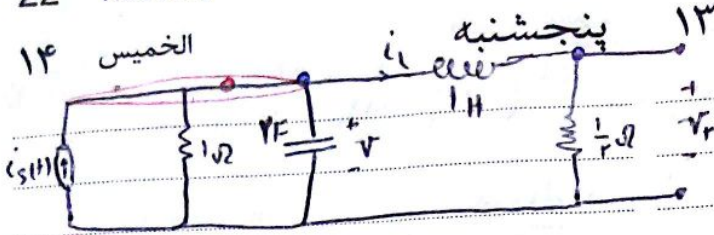 ۱۳
پنجشنبه
الخمیس
۱۴
i₁
1H
iₛ(t)
1Ω
۲F
+
v
-
½Ω
+
v₂
-